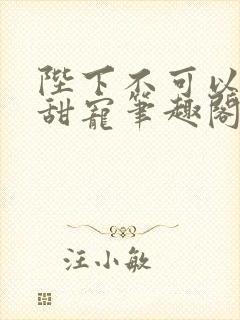 陛下不可以
甜寵筆趣閣
汪小敏